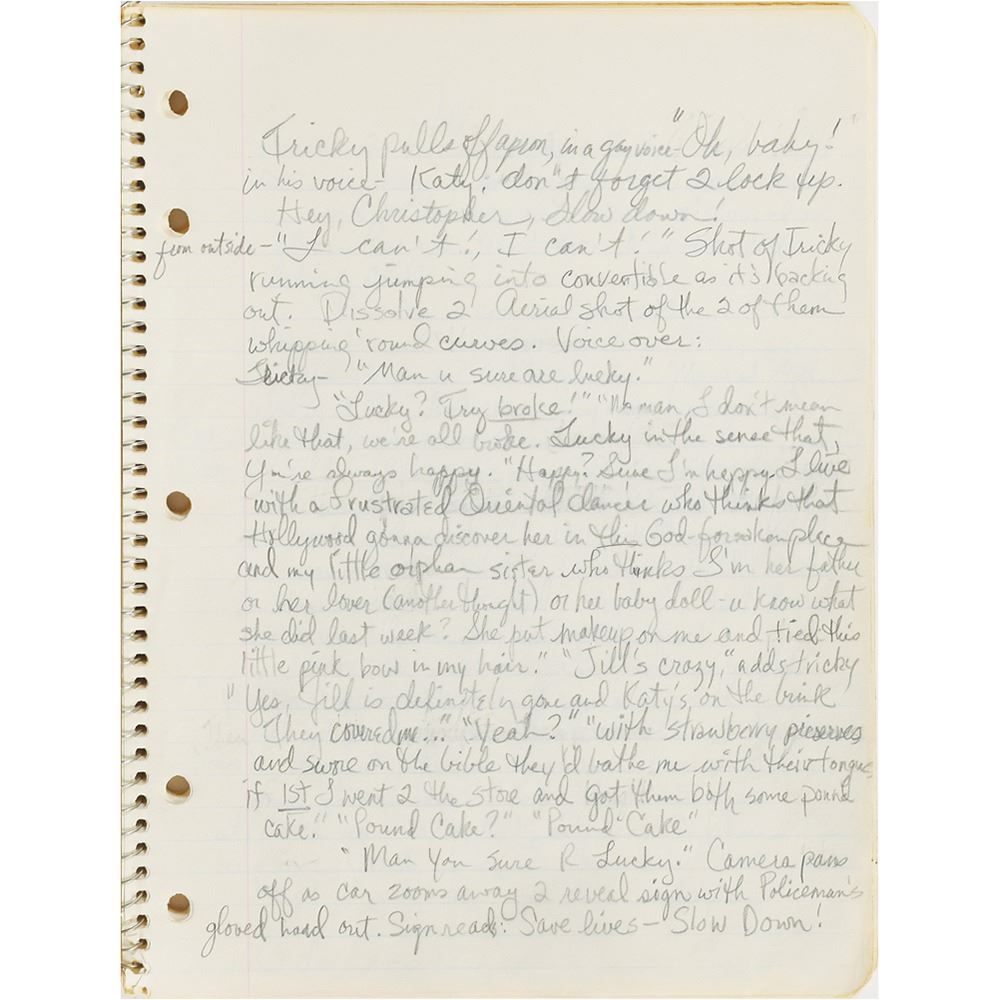 Tricky pulls off apron, in a gay voice - "Oh, baby!"
in his voice - Katy, don"t forget 2 lock up.
Hey, Christopher, slow down!
from outside - "I can't!, I can't!" Shot of Tricky
running jumping into convertible as it's backing
out. Dissolve 2 Aerial shot of the 2 of them
whipping 'round curves. Voice over:
Tricky - "Man u sure are lucky."
"Lucky? Try broke!" "No man, I don't mean
like that, we're all broke. Lucky in the sense that,
You're always happy. "Happy? Sure I'm happy. I live
with a frustrated Oriental dancer who thinks that
Hollywood gonna discover her in this God-forsaken place
and my little orphan sister who thinks I'm her father
or her lover (another thought) or her baby doll - u know what
she did last week? She put makeup on me and tied this
little pink bow in my hair." "Jill's crazy," adds tricky
"Yes, Jill is definitely gone and Katy's on the brink
They covered me..." "Yeah?" "with strawberry preserves
and swore on the bible they'd bathe me with their tongues
if 1st I went 2 the store and got them both some pound
cake." "Pound Cake?" "Pound Cake"
"Man You Sure R Lucky." Camera pans
off as car zooms away 2 reveal sign with Policeman's
gloved hand out. Sign reads: Save lives - Slow Down!